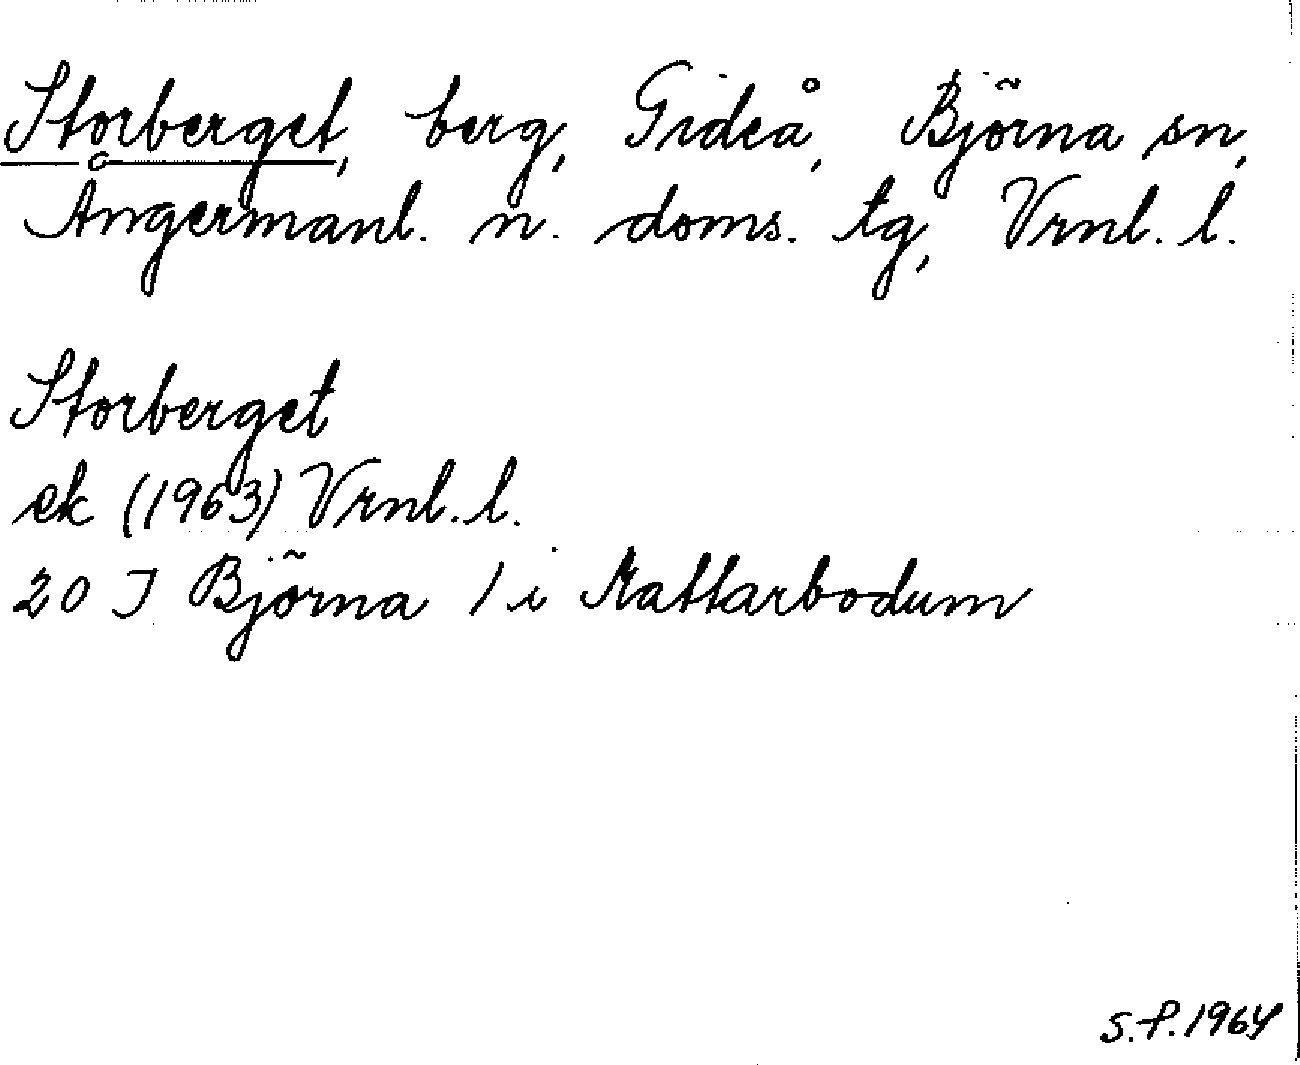 Storberget, berg, Gideå, Björna sn,
Ångermanl. n. doms. tg, Vrnl. l.
Storberget
ek (1963) Vrnl. l.
20 J Björna 1 i Mattarbodum
S.P. 1964